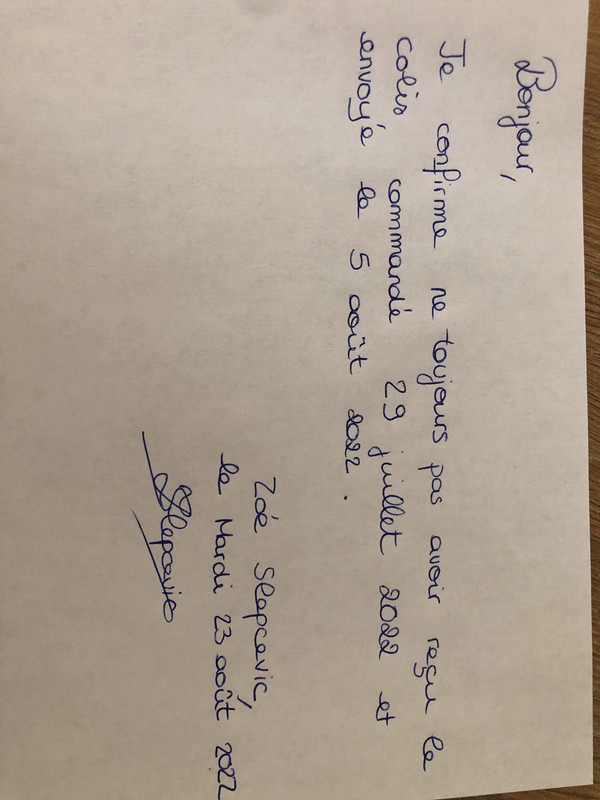 Bonjour,
Je confirme ne toujours pas avoir reçu le
colis commandé 29 juillet 2022 et
envoyé le 5 août 2022.
Zoé Slepcevic,
le Mardi 23 août 2022
Slepcevic